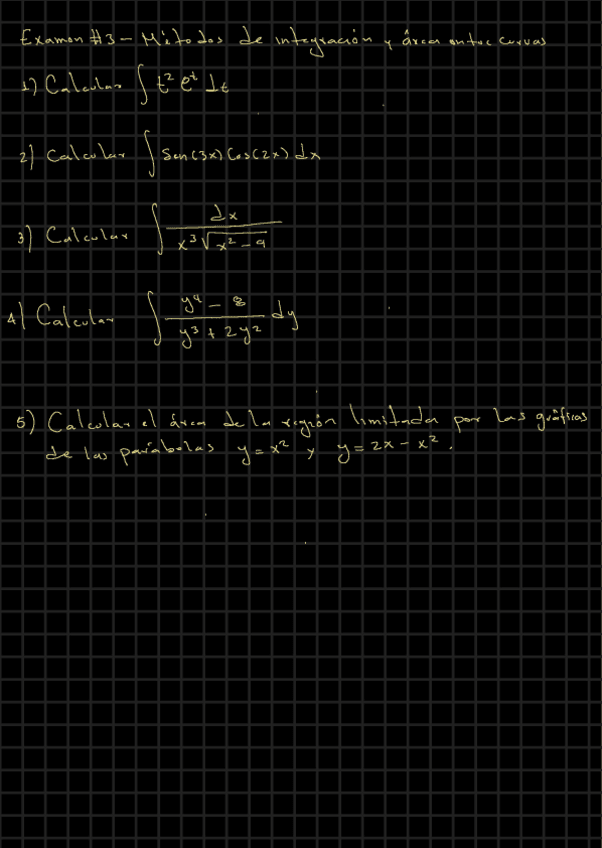 Examen #3 - Métodos de integración y área entre curvas
1) Calcular ∫ t² eᵗ dt
2) Calcular ∫ Sen(3x) Cos(2x) dx
3) Calcular ∫ dx / (x³ √(x² - 9))
4) Calcular ∫ (y⁴ - 8) / (y³ + 2y²) dy
5) Calcular el área de la región limitada por las gráficas
de las parábolas y = x² y y = 2x - x².